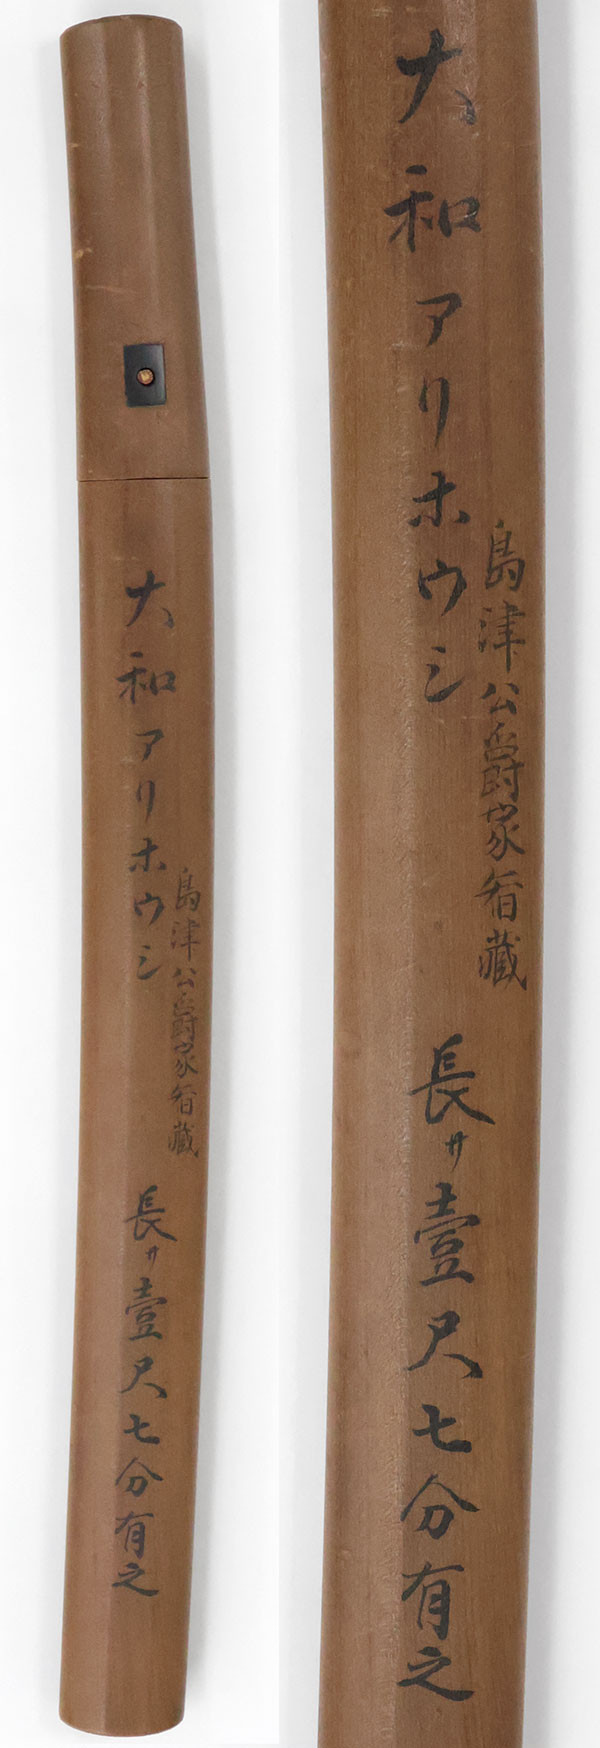 大和アリホウシ
島津公爵家蔵
長サ壹尺七分有之
大和アリホウシ
島津公爵家蔵
長サ壹尺七分有之